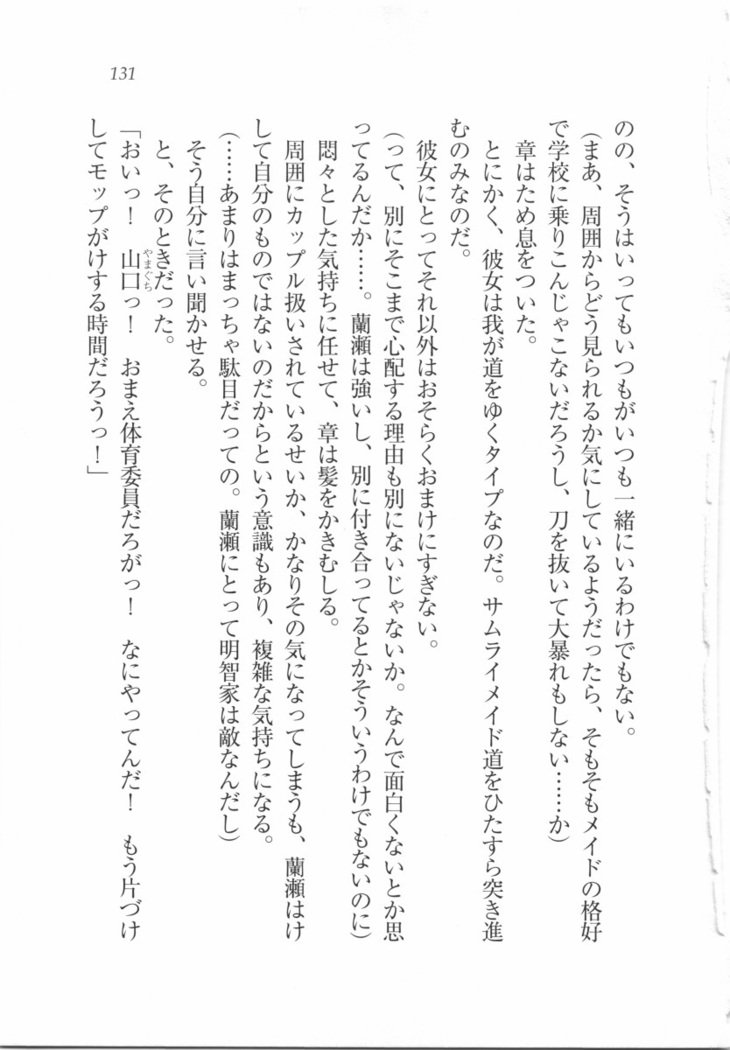 131
のの、そうはいってもいつもがいつも一緒にいるわけでもない。
(まあ、周囲からどう見られるか気にしているようだったら、そもそもメイドの格好
で学校に乗りこんじゃこないだろうし、刀を抜いて大暴れもしない……か)
章はため息をついた。
とにかく、彼女は我が道をゆくタイプなのだ。サムライメイド道をひたすら突き進
むのみなのだ。
彼女にとってそれ以外はおそらくおまけにすぎない。
(って、別にそこまで心配する理由も別にないじゃないか。なんで面白くないとか思
ってるんだか……。蘭瀬は強いし、別に付き合ってるとかそういうわけでもないのに)
悶々とした気持ちに任せて、章は髪をかきむしる。
周囲にカップル扱いされているせいか、かなりその気になってしまうも、蘭瀬はけ
して自分のものではないのだからという意識もあり、複雑な気持ちになる。
(……あまりはまっちゃ駄目だっての。蘭瀬にとって明智家は敵なんだし)
そう自分に言い聞かせる。
と、そのときだった。
「おいっ!　山口っ!　おまえ体育委員だろがっ!　なにやってんだ!　もう片づけ
やまぐち
してモップがけする時間だろうっ!」